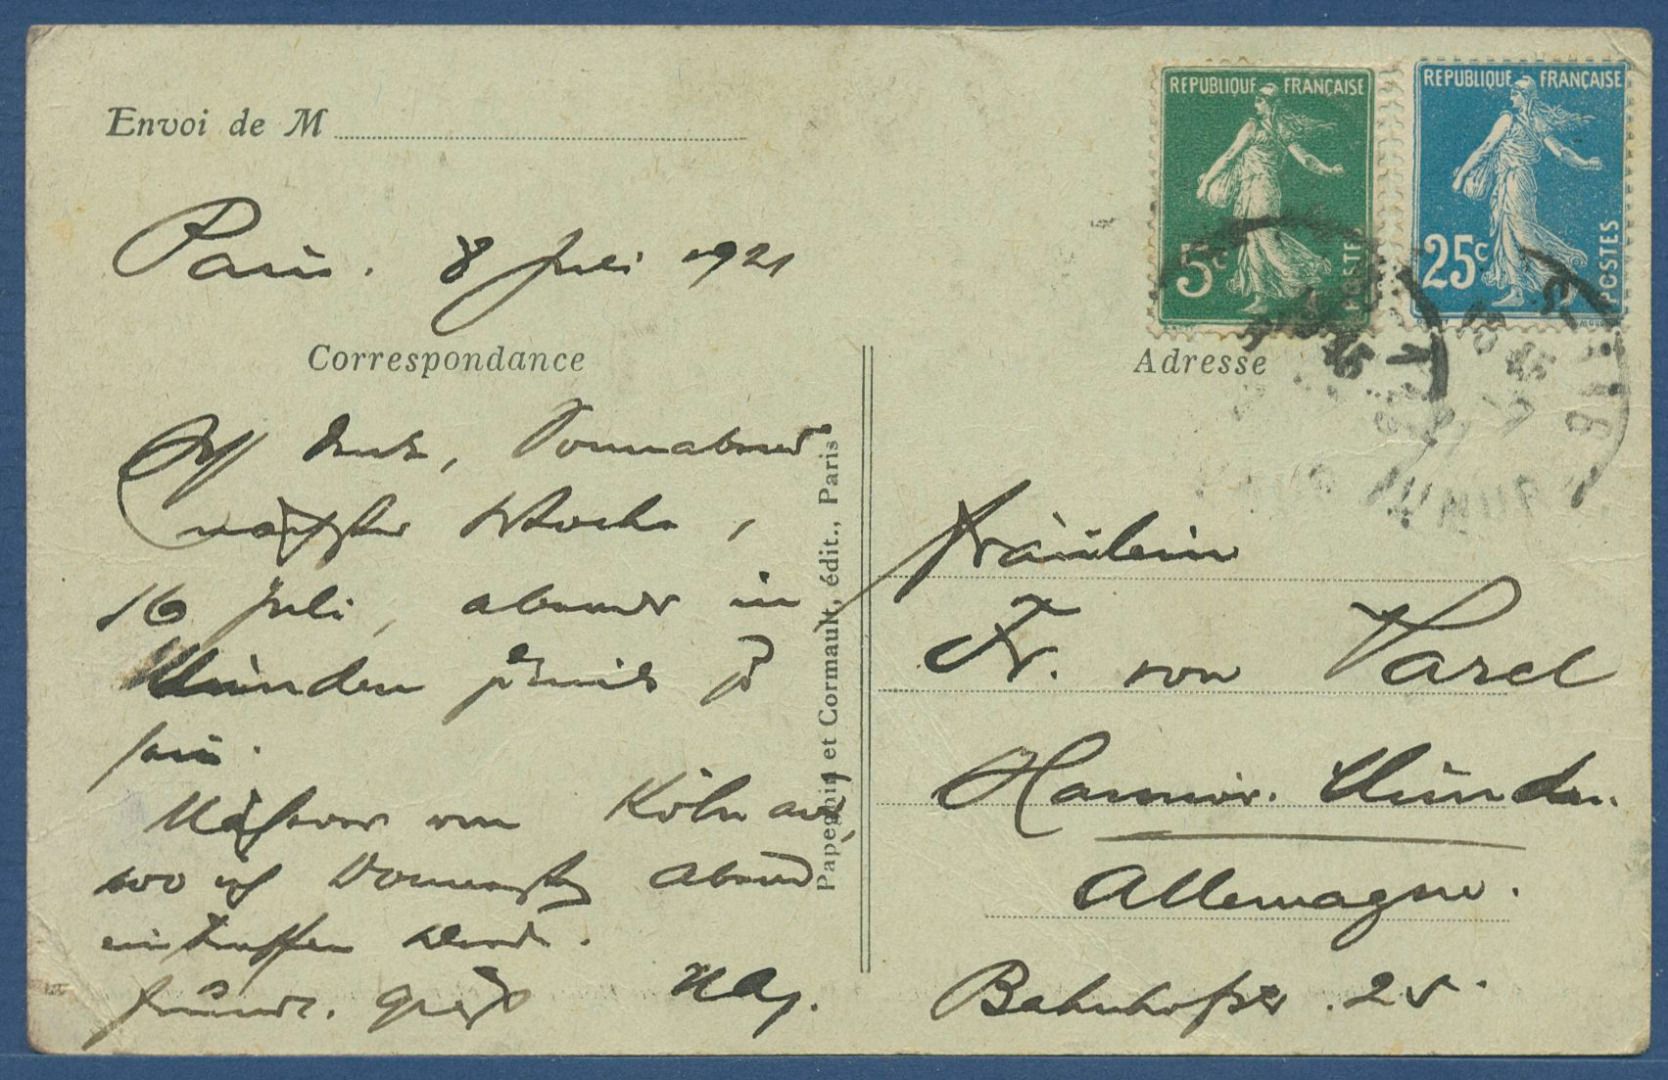 Envoi de M
Paris. 8 Juli 1921
Correspondance
Ich denke, Sonnabend
nächster Woche,
16 Juli, abends in
Münden zu
sein.
Näheres von Köln aus,
wo ich Donnerstag Abend
eintreffen werde.
freundl. Gruß
Papeghin et Cormault, édit., Paris
REPUBLIQUE FRANÇAISE
5c
POSTES
REPUBLIQUE FRANÇAISE
25c
POSTES
Adresse
Fräulein
Fr. von Varel
Hannöv. Münden.
Allemagne.
Bahnhofstr. 25.